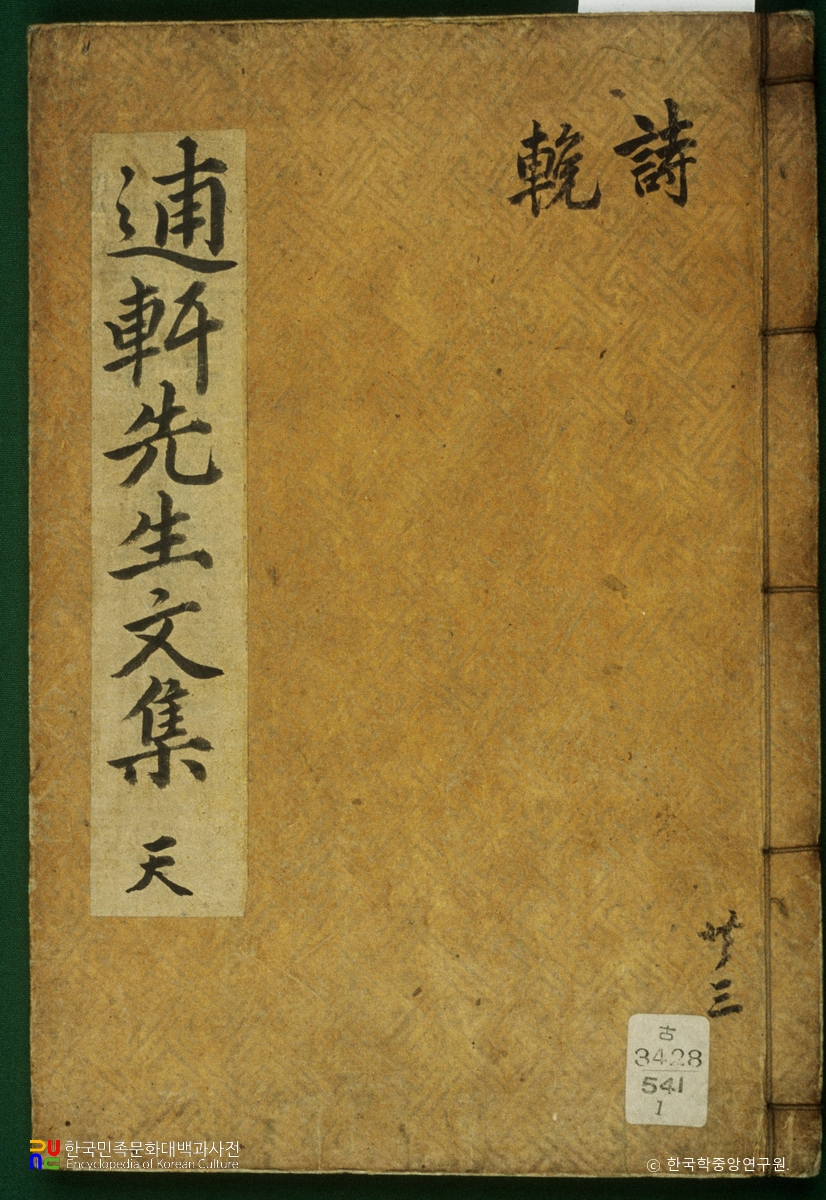 詩
輓
逋軒先生文集 天
共三
古
3428
541
1
한국민족문화대백과사전
Encyclopedia of Korean Culture
© 한국학중앙연구원.